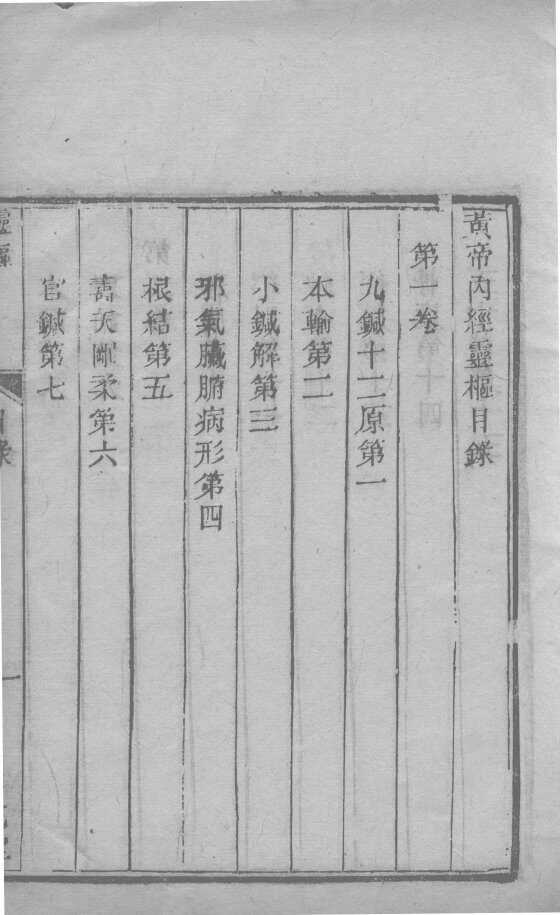 黃帝內經靈樞目錄
第一卷
九鍼十二原第一
本輸第二
小鍼解第三
邪氣臟腑病形第四
根結第五
壽夭剛柔第六
官鍼第七
靈樞
目錄
一